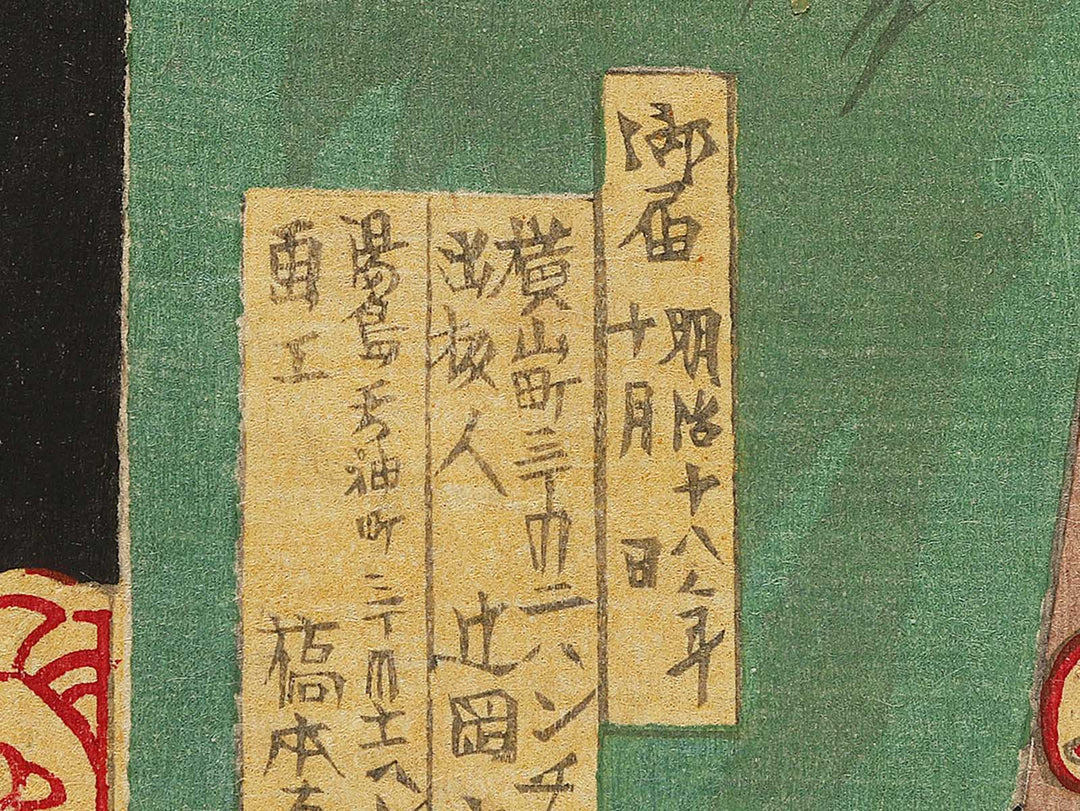 御届
明治十八年
十月　日
横山町三丁目二ハンチ
出板人　辻岡
湯島天神町三丁目十一ハ
画工　橋本